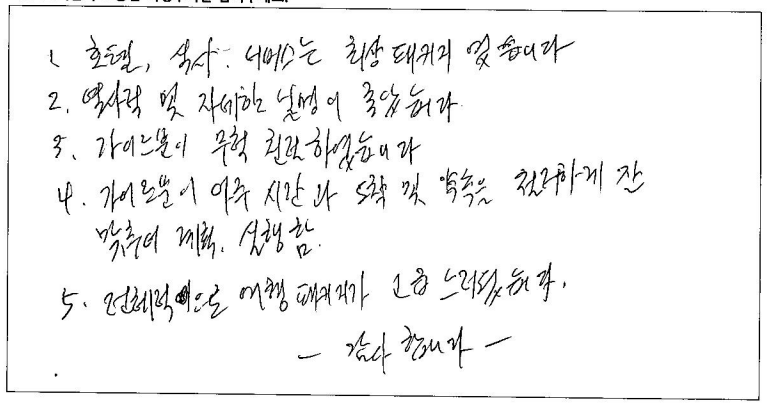 1. 호텔, 식사. 서비스는 최상 패키지 였습니다
2. 역사적 및 자세한 설명이 좋았습니다.
3. 가이드분이 무척 친절하였습니다
4. 가이드분이 아주 시간과 도착 및 약속을 철저하게 잘
맞추어 계획. 실행함.
5. 전체적으로 여행 패키지가 고급 스러웠습니다.
- 감사 합니다 -